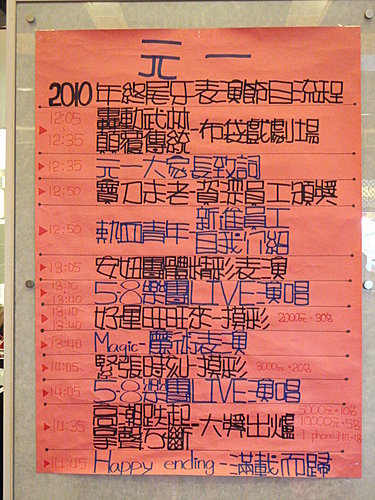 元一
2010年終尾牙表演節目流程
12:05
12:35
轟動武林
顛覆傳統-布袋戲劇場
12:35 元一大家長致詞
12:50 寶刀未老-資深員工頒獎
12:50 熱血青年-新進員工
自我介紹
13:05 安妞團體精彩表演
13:10
13:40
58樂團LIVE演唱
13:40
13:40
好星旺旺來-摸彩 2000元×30%
13:40 Magic-魔術表演
14:05 緊張時刻-摸彩 3000元×20%
14:05 58樂團LIVE演唱
14:35 高潮跌起
掌聲不斷-大獎出爐
5000元×10%
Happy ending-滿載而歸